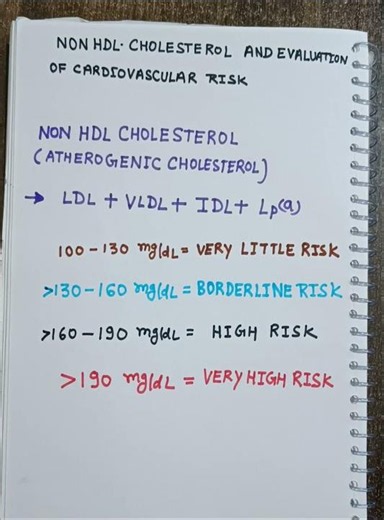 NON HDL- CHOLESTEROL AND EVALUATION
OF CARDIOVASCULAR RISK
NON HDL CHOLESTEROL
(ATHEROGENIC CHOLESTEROL)
→ LDL + VLDL + IDL + Lp(a)
100 - 130 mg/dL = VERY LITTLE RISK
>130 - 160 mg/dL = BORDERLINE RISK
>160 - 190 mg/dL = HIGH RISK
>190 mg/dL = VERY HIGH RISK